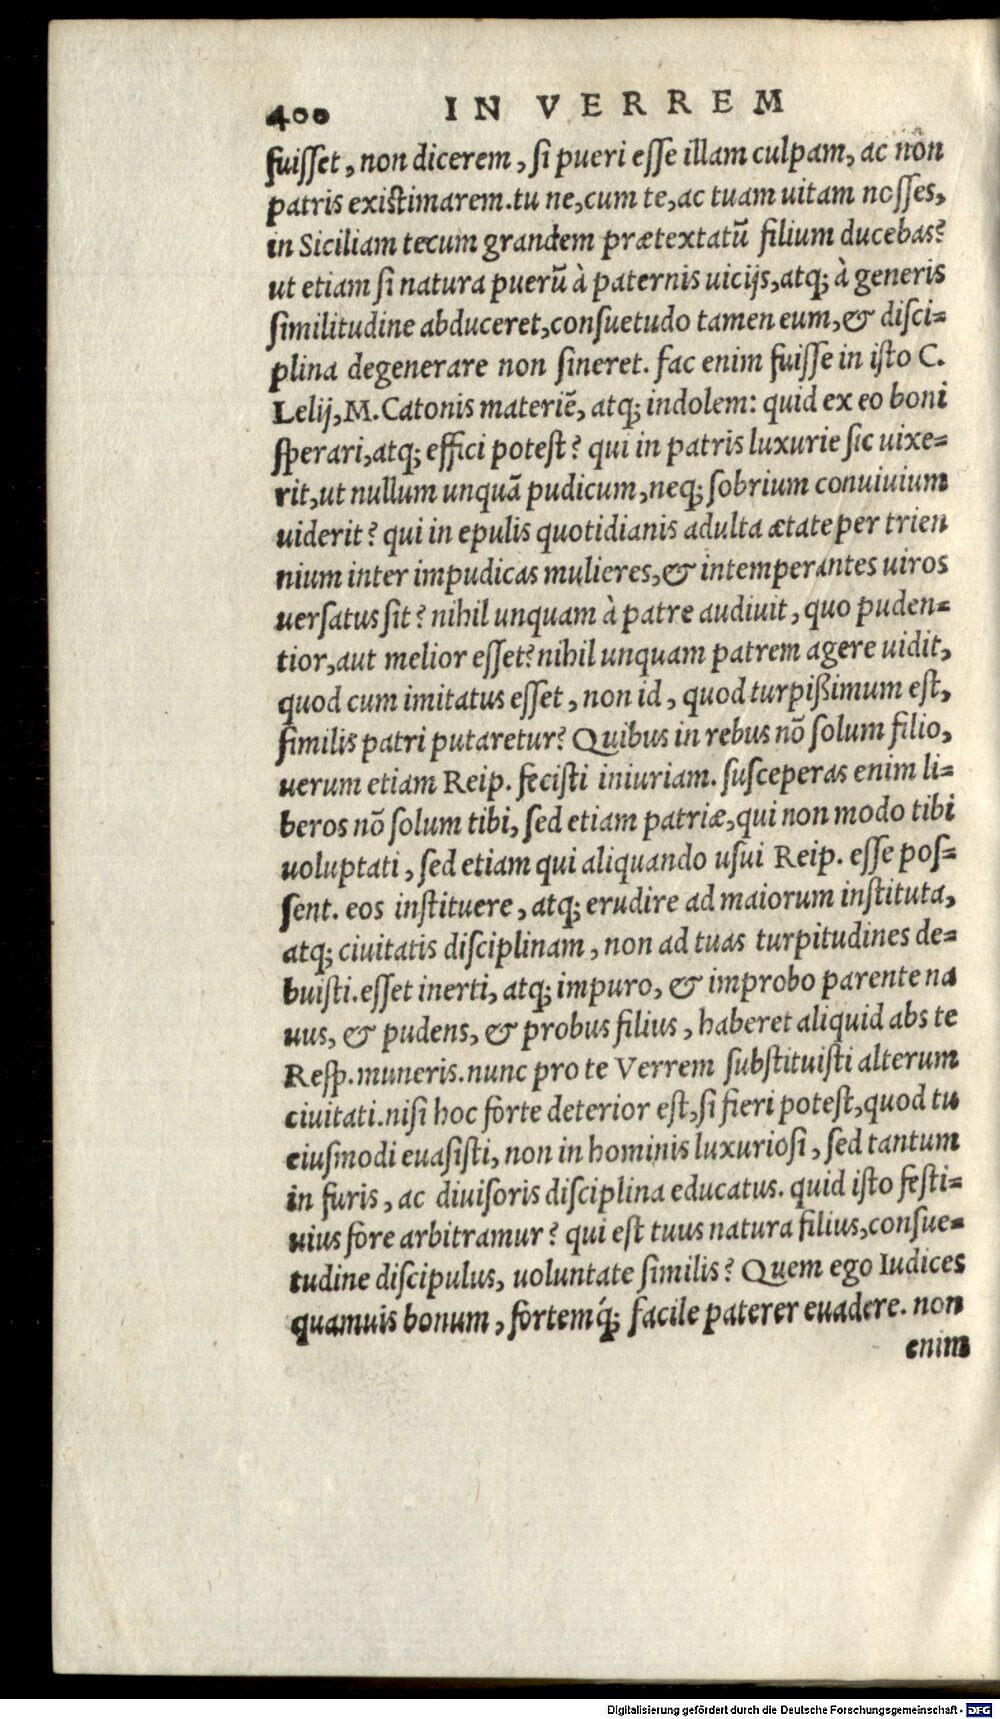 400 IN VERREM
fuiſſet, non dicerem, ſi pueri eſſe illam culpam, ac non
patris exiſtimarem. tu ne, cum te, ac tuam uitam noſſes,
in Siciliam tecum grandem prætextatũ filium ducebas?
ut etiam ſi natura puerũ à paternis uicijs, atq; à generis
ſimilitudine abduceret, conſuetudo tamen eum, & diſci=
plina degenerare non ſineret. fac enim fuiſſe in iſto C.
Lelij, M. Catonis materiẽ, atq; indolem: quid ex eo boni
ſperari, atq; effici poteſt? qui in patris luxurie ſic uixe=
rit, ut nullum unquã pudicum, neq; ſobrium conuiuium
uiderit? qui in epulis quotidianis adulta ætate per trien
nium inter impudicas mulieres, & intemperantes uiros
uerſatus ſit? nihil unquam à patre audiuit, quo puden=
tior, aut melior eſſet? nihil unquam patrem agere uidit,
quod cum imitatus eſſet, non id, quod turpißimum eſt,
ſimilis patri putaretur? Quibus in rebus nõ ſolum filio,
uerum etiam Reip. feciſti iniuriam. ſuſceperas enim li=
beros nõ ſolum tibi, ſed etiam patriæ, qui non modo tibi
uoluptati, ſed etiam qui aliquando uſui Reip. eſſe poſ=
ſent. eos inſtituere, atq; erudire ad maiorum inſtituta,
atq; ciuitatis diſciplinam, non ad tuas turpitudines de=
buiſti. eſſet inerti, atq; impuro, & improbo parente na
uus, & pudens, & probus filius, haberet aliquid abs te
Reſp. muneris. nunc pro te Verrem ſubſtituiſti alterum
ciuitati. niſi hoc forte deterior eſt, ſi fieri poteſt, quod tu
eiuſmodi euaſiſti, non in hominis luxurioſi, ſed tantum
in furis, ac diuiſoris diſciplina educatus. quid iſto feſti=
uius fore arbitramur? qui eſt tuus natura filius, conſue=
tudine diſcipulus, uoluntate ſimilis? Quem ego Iudices
quamuis bonum, fortemq́; facile paterer euadere. non
enim
Digitalisierung gefördert durch die Deutsche Forschungsgemeinschaft - DFG